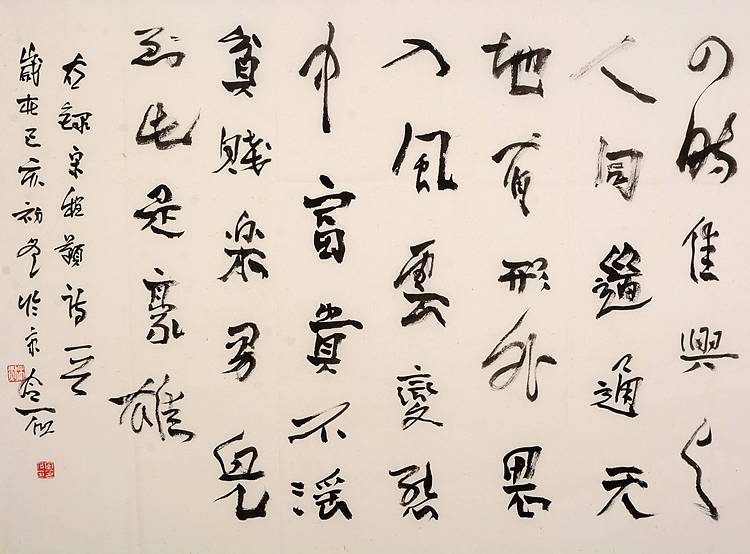 四時佳興与
人同道通天
地有形外思
入風雲變態
中富貴不淫
貧賤樂男兒
到此是豪雄
右録宋程顥詩一首
歲在己亥初冬於京